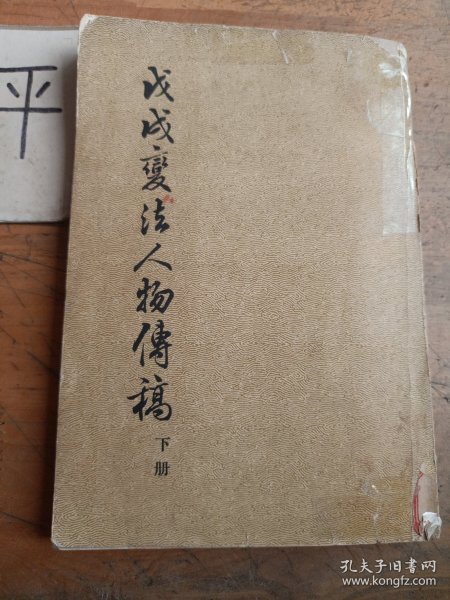 戊戌變法人物傳稿
下册
平
孔夫子旧书网
www.kongfz.com